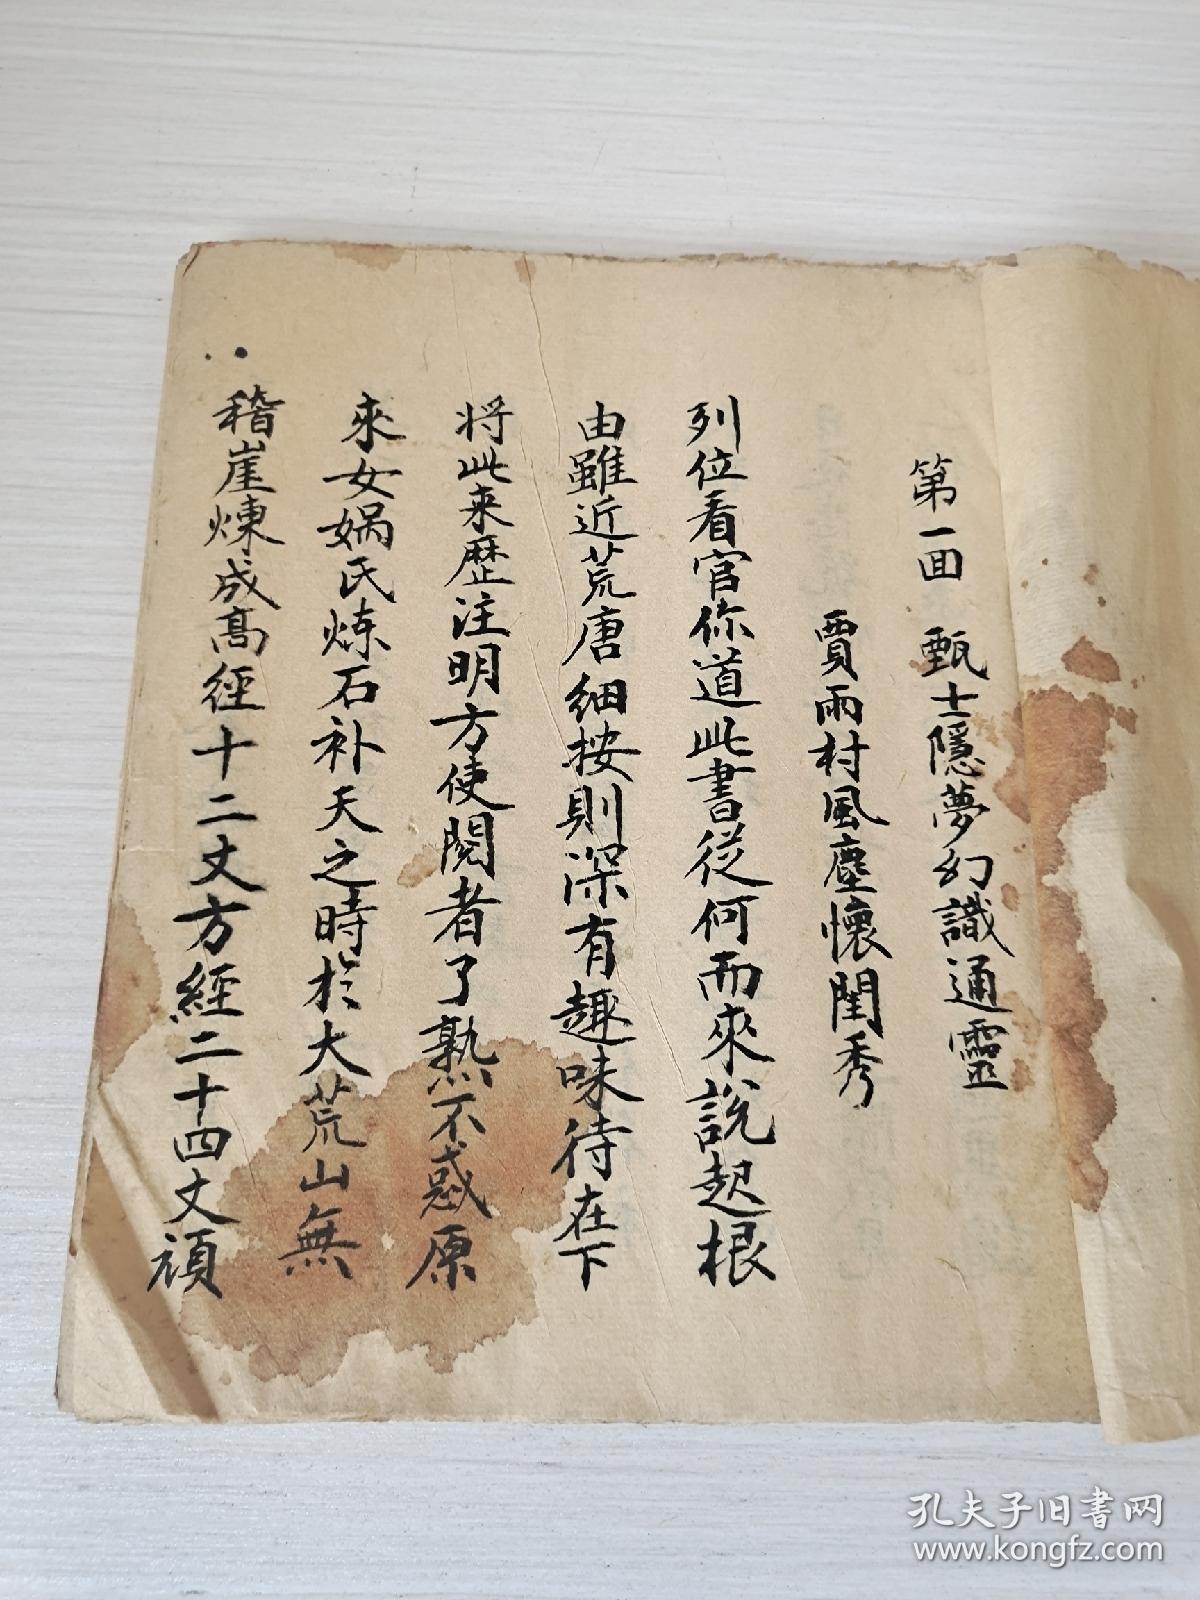 第一回 甄士隱夢幻識通靈
賈雨村風塵懷閨秀
列位看官你道此書從何而來說起根
由雖近荒唐細按則深有趣味待在下
将此来歷注明方使閱者了熟不惑原
來女媧氏炼石补天之時於大荒山無
稽崖煉成高徑十二丈方經二十四丈頑
孔夫子旧书网
www.kongfz.com